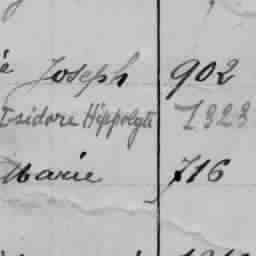 Joseph 902
Isidore Hippolyte 1323
Marie 716